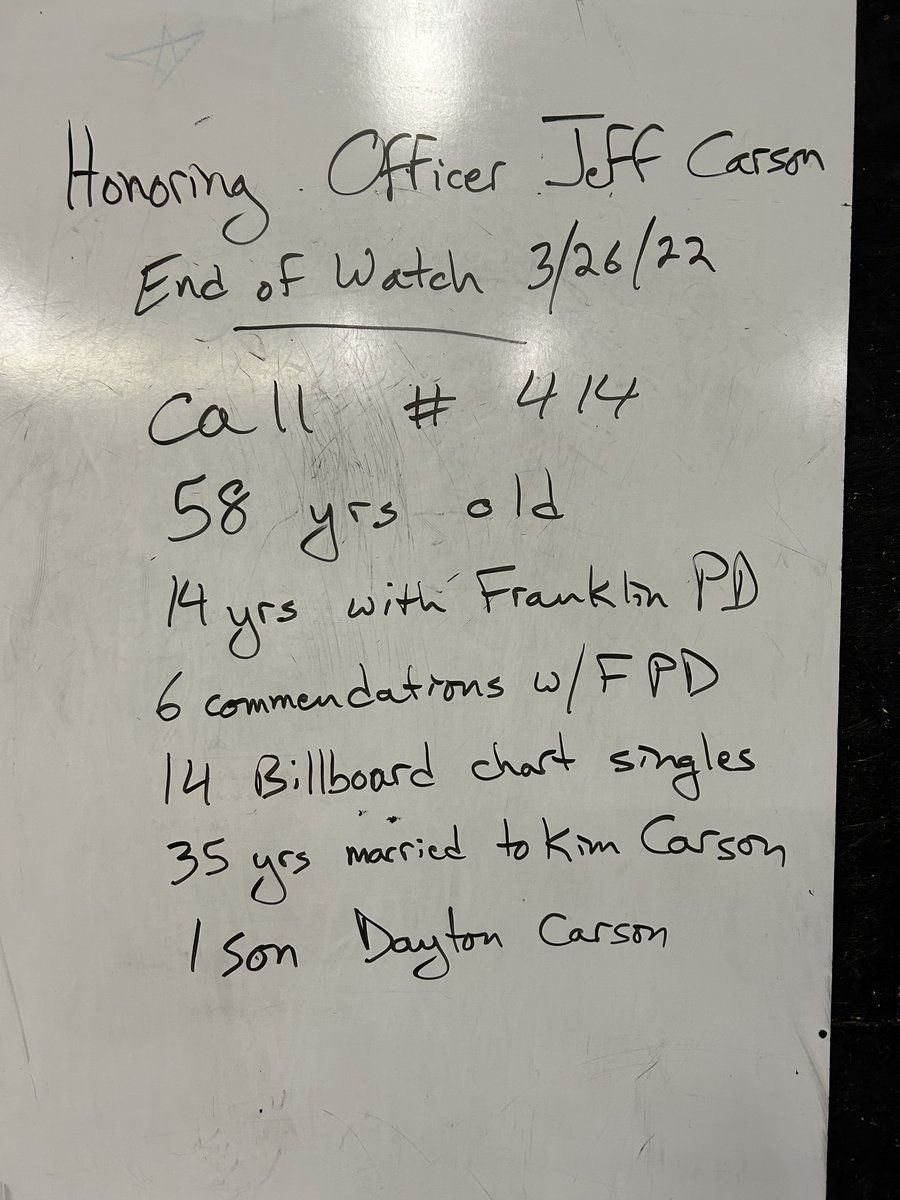 Honoring Officer Jeff Carson
End of Watch 3/26/22
Call # 414
58 yrs old
14 yrs with Franklin PD
6 commendations w/FPD
14 Billboard chart singles
35 yrs married to Kim Carson
1 son Dayton Carson